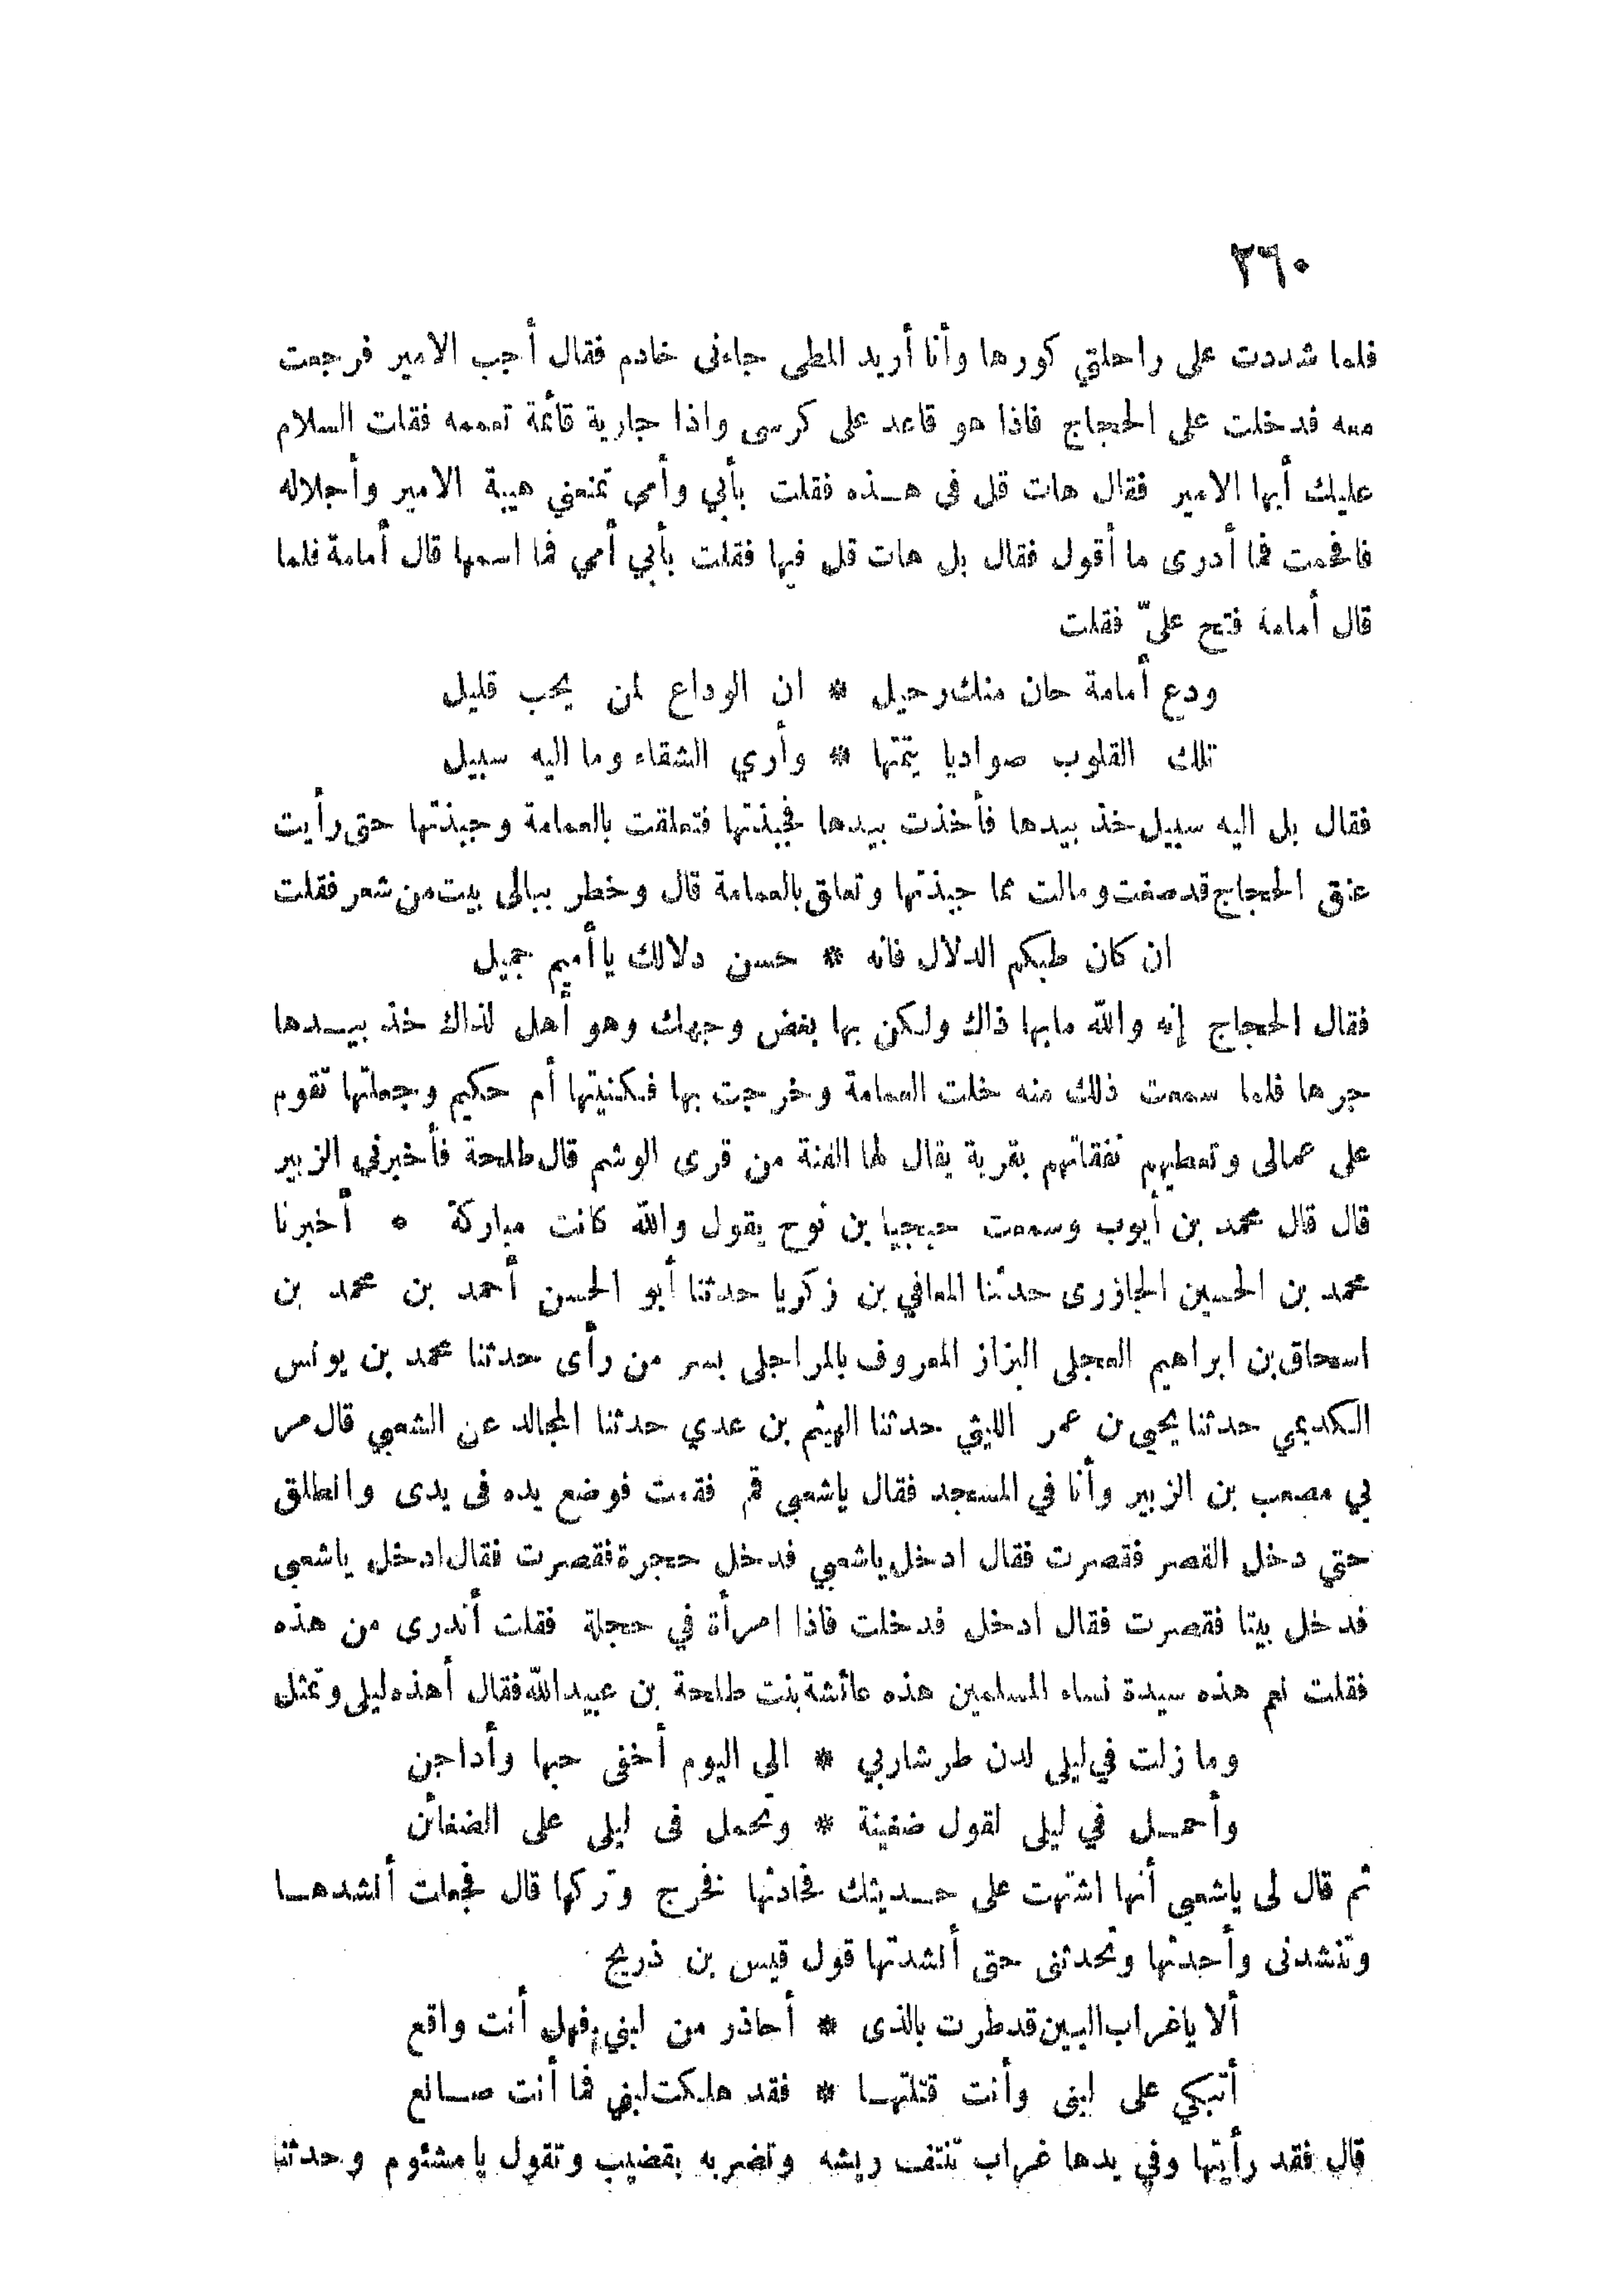 ٢٦٠
فلما شددت على راحلتي كورها وأنا أريد المطى جاءنى خادم فقال أجب الامير فرجعت
معه فدخلت على الحجاج فاذا هو قاعد على كرسى واذا جارية قائمة تعممه فقلت السلام
عليك أيها الامير فقال هات قل في هـذه فقلت بأبي وأمى تمنعني هيبة الامير وأجلاله
فافحمت فما أدرى ما أقول فقال بل هات قل فيها فقلت بأبي أمي فما اسمها قال أمامة فلما
قال أمامة فتح علىّ فقلت
ودع أمامة حان منك رحيل * ان الوداع لمن يحب قليل
تلك القلوب صواديا يتمتها * وأري الشقاء وما اليه سبيل
فقال بل اليه سبيل خذ بيدها فأخذت بيدها فجبذتها فتعلقت بالعمامة وجبذتها حتى رأيت
عنق الحجاج قد صغت ومالت مما جبذتها وتعلق بالعمامة قال وخطر ببالى بيت من شعر فقلت
ان كان طبكم الدلال فانه * حسن دلالك يا أميم جميل
فقال الحجاج إنه والله مابها ذاك ولكن بها بغض وجهك وهو أهل لذاك خذ بيـدها
جرها فلما سمعت ذلك منه خلت العمامة وخرجت بها فكنيتها أم حكيم وجعلتها تقوم
على عمالى وتعطيهم نفقاتهم بقرية يقال لها الغنة من قرى الوشم قال طلحة فأخبرني الزبير
قال قال محمد بن أيوب وسمعت حبجيا بن نوح يقول والله كانت مباركة ٥ أخبرنا
محمد بن الحسين الجازرى حدثنا المعافي بن زكريا حدثنا أبو الحسن أحمد بن محمد بن
اسحاق بن ابراهيم العجلى البزاز المعروف بالمراجلى بسر من رأى حدثنا محمد بن يونس
الكديمي حدثنا يحيى بن عمر الليثي حدثنا الهيثم بن عدي حدثنا المجالد عن الشعبي قال مر
بي مصعب بن الزبير وأنا في المسجد فقال ياشعبي قم فقمت فوضع يده فى يدى وانطلق
حتي دخل القصر فقصرت فقال ادخل ياشعبي فدخل حجرة فقصرت فقال ادخل ياشعبي
فدخل بيتا فقصرت فقال ادخل فدخلت فاذا امرأة في حجلة فقلت أتدرى من هذه
فقلت نعم هذه سيدة نساء المسلمين هذه عائشة بنت طلحة بن عبيد الله فقال أهذه ليلى وتمثل
وما زلت في ليلى لدن طر شاربي * الى اليوم أخفى حبها وأداجن
وأحمـل في ليلى لقول ضغينة * وتحمل فى ليلى على الضغائن
ثم قال لى ياشعبي أنها اشتهت على حـديثك فحادثها فخرج وتركها قال فجعلت أنشدهـا
وتنشدنى وأحدثها وتحدثنى حتى أنشدتها قول قيس بن ذريح
ألا ياغراب البين قد طرت بالذى * أحاذر من لبني فهل أنت واقع
أتبكي على لبنى وأنت قتلتهـا * فقد هلكت لبني فما أنت صـانع
قال فقد رأيتها وفي يدها غراب تنتف ريشه وتضربه بقضيب وتقول يا مشئوم وحدثنا